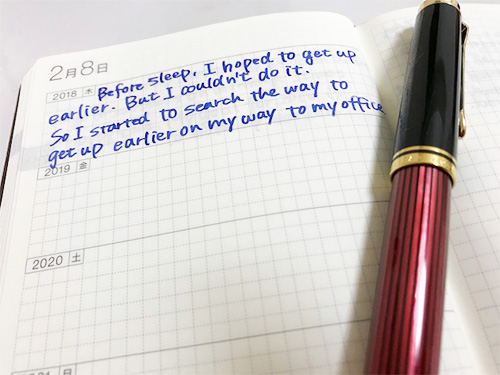 2月8日
2018 木 Before sleep, I hoped to get up
earlier. But I couldn't do it.
So I started to search the way to
get up earlier on my way to my office
2019 金
2020 土
2021 日